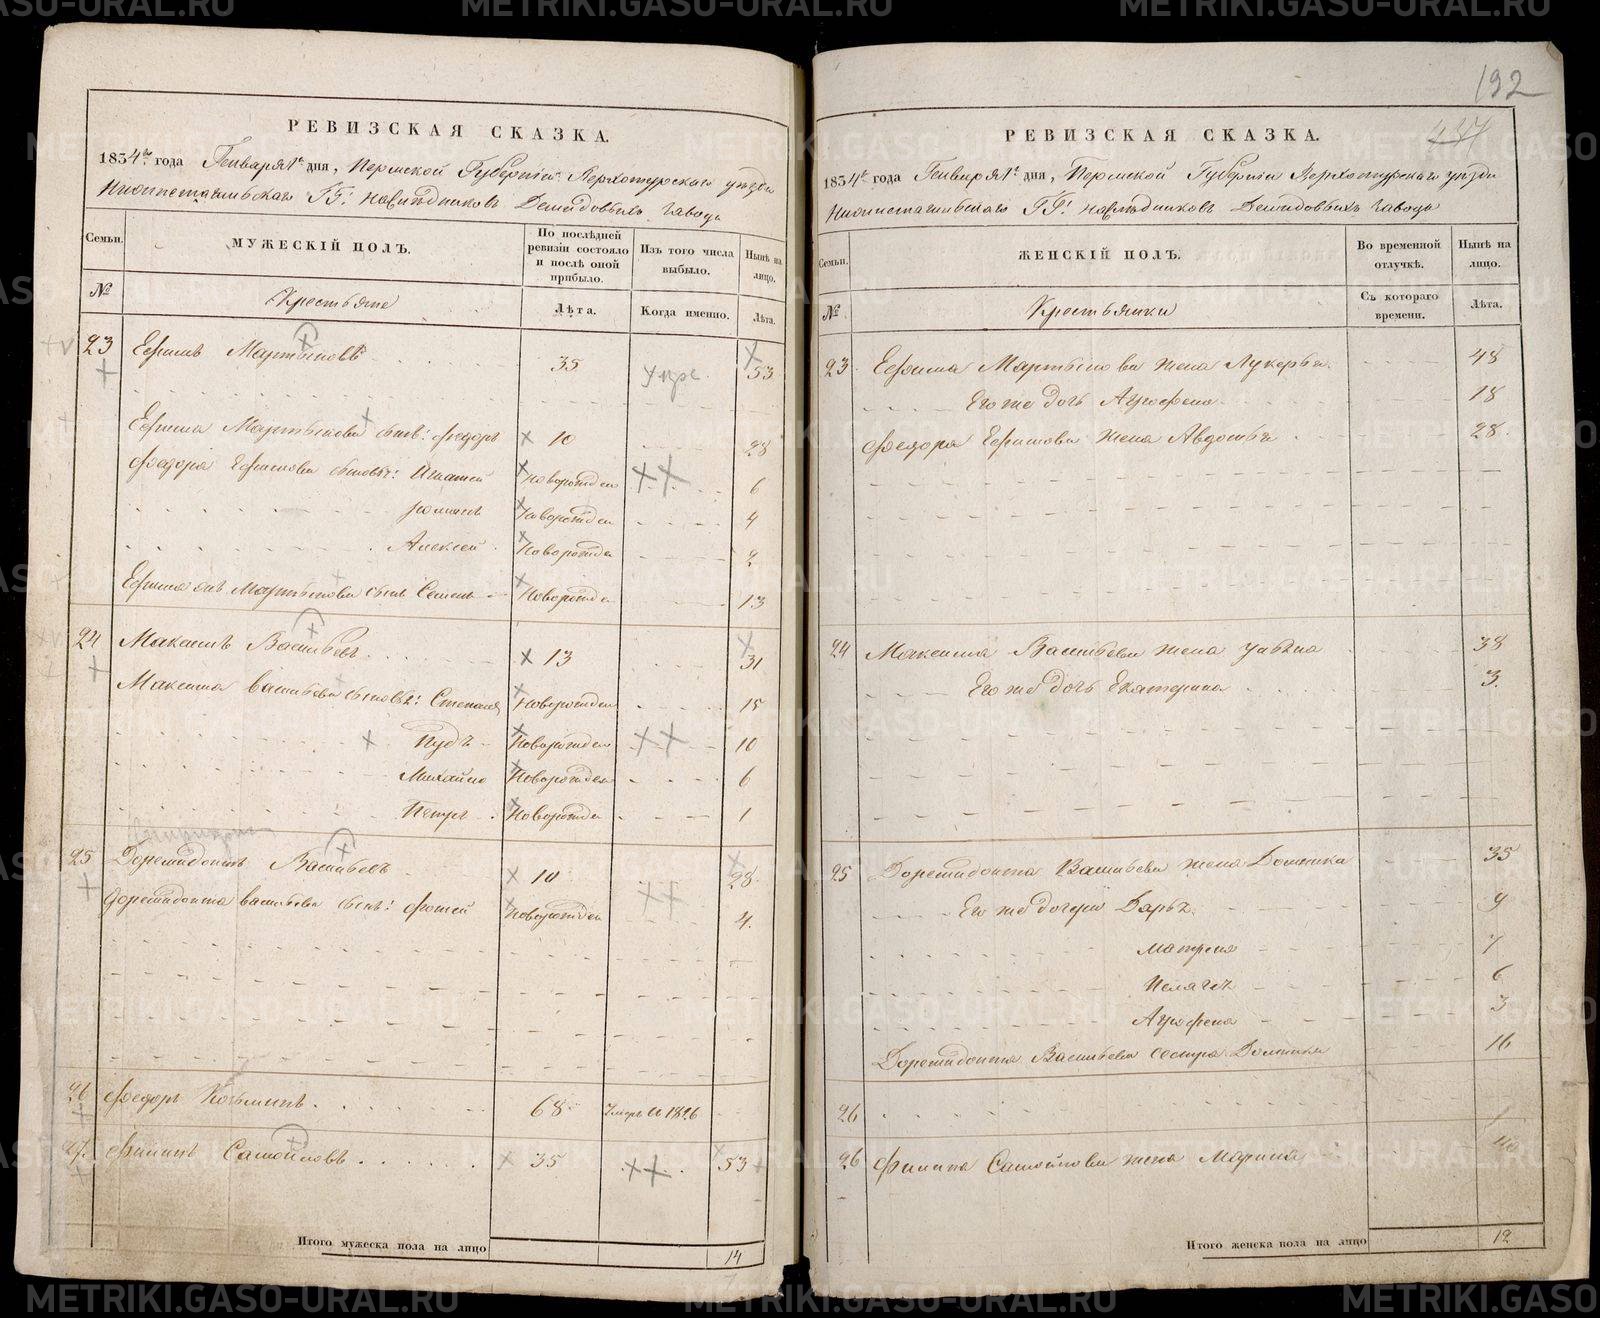 РЕВИЗСКАЯ СКАЗКА.
1834го года Генваря 1е дня, Пермской Губернии Верхотурскаго уезда
Нижнетагильскаго ГГ: Наследниковъ Демидовыхъ завода
Семьи. МУЖЕСКІЙ ПОЛЪ. По послѣдней ревизіи состояло и послѣ оной прибыло. Изъ того числа выбыло. Нынѣ на лицо.
№ Крестьяне Лѣта. Когда именно. Лѣта.
23 Ефимъ Мартыновъ 35 53
Ефима Мартынова сынъ: Федоръ 10 28
Федора Ефимова сыновья: Игнатей Новорожден 6
Новорожден 4
Алексей Новорожден 2
Ефима Мартынова сынъ Семенъ Новорожден 13
24 Максимъ Васильевъ 13 31
Максима Васильева сыновья: Степанъ Новорожден 15
Пудъ Новорожден 10
Михайло Новорожден 6
Петръ Новорожден 1
25 Доремидонтъ Васильевъ 10 28
Доремидонта Васильева сынъ: Фотей Новорожден 4
26 Федоръ Козьминъ 68 Умеръ въ 1826
27 Филипъ Самойловъ 35 53
Итого мужеска пола на лицо 14
192
437
РЕВИЗСКАЯ СКАЗКА.
1834го года Генваря 1е дня, Пермской Губернии Верхотурскаго уезда
Нижнетагильскаго ГГ: Наследниковъ Демидовыхъ завода
Семьи. ЖЕНСКІЙ ПОЛЪ. Во временной отлучкѣ. Нынѣ на лицо.
№ Крестьянки Съ котораго времени. Лѣта.
23 Ефима Мартынова жена Лукерья 48
Его же дочь Агрофена 18
Федора Ефимова жена Авдотья 28
24 Максима Васильева жена Ульяна 38
Его же дочь Екатерина 3
25 Доремидонта Васильева жена Домника 35
Его же дочери Дарья 9
Матрена 7
Пелагея 6
Агрофена 3
Доремидонта Васильева сестра 16
26
26 Филипа Самойлова жена Марина
Итого женска пола на лицо 12
METRIKI.GASO-URAL.RU